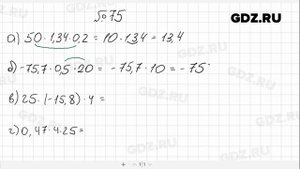 №75
GDZ.RU
а) 50 · 1,34 · 0,2 = 10 · 1,34 = 13,4
б) -75,7 · 0,5 · 20 = -75,7 · 10 = -75
в) 25 · (-15,8) · 4 =
г) 0,47 · 4 · 25 =